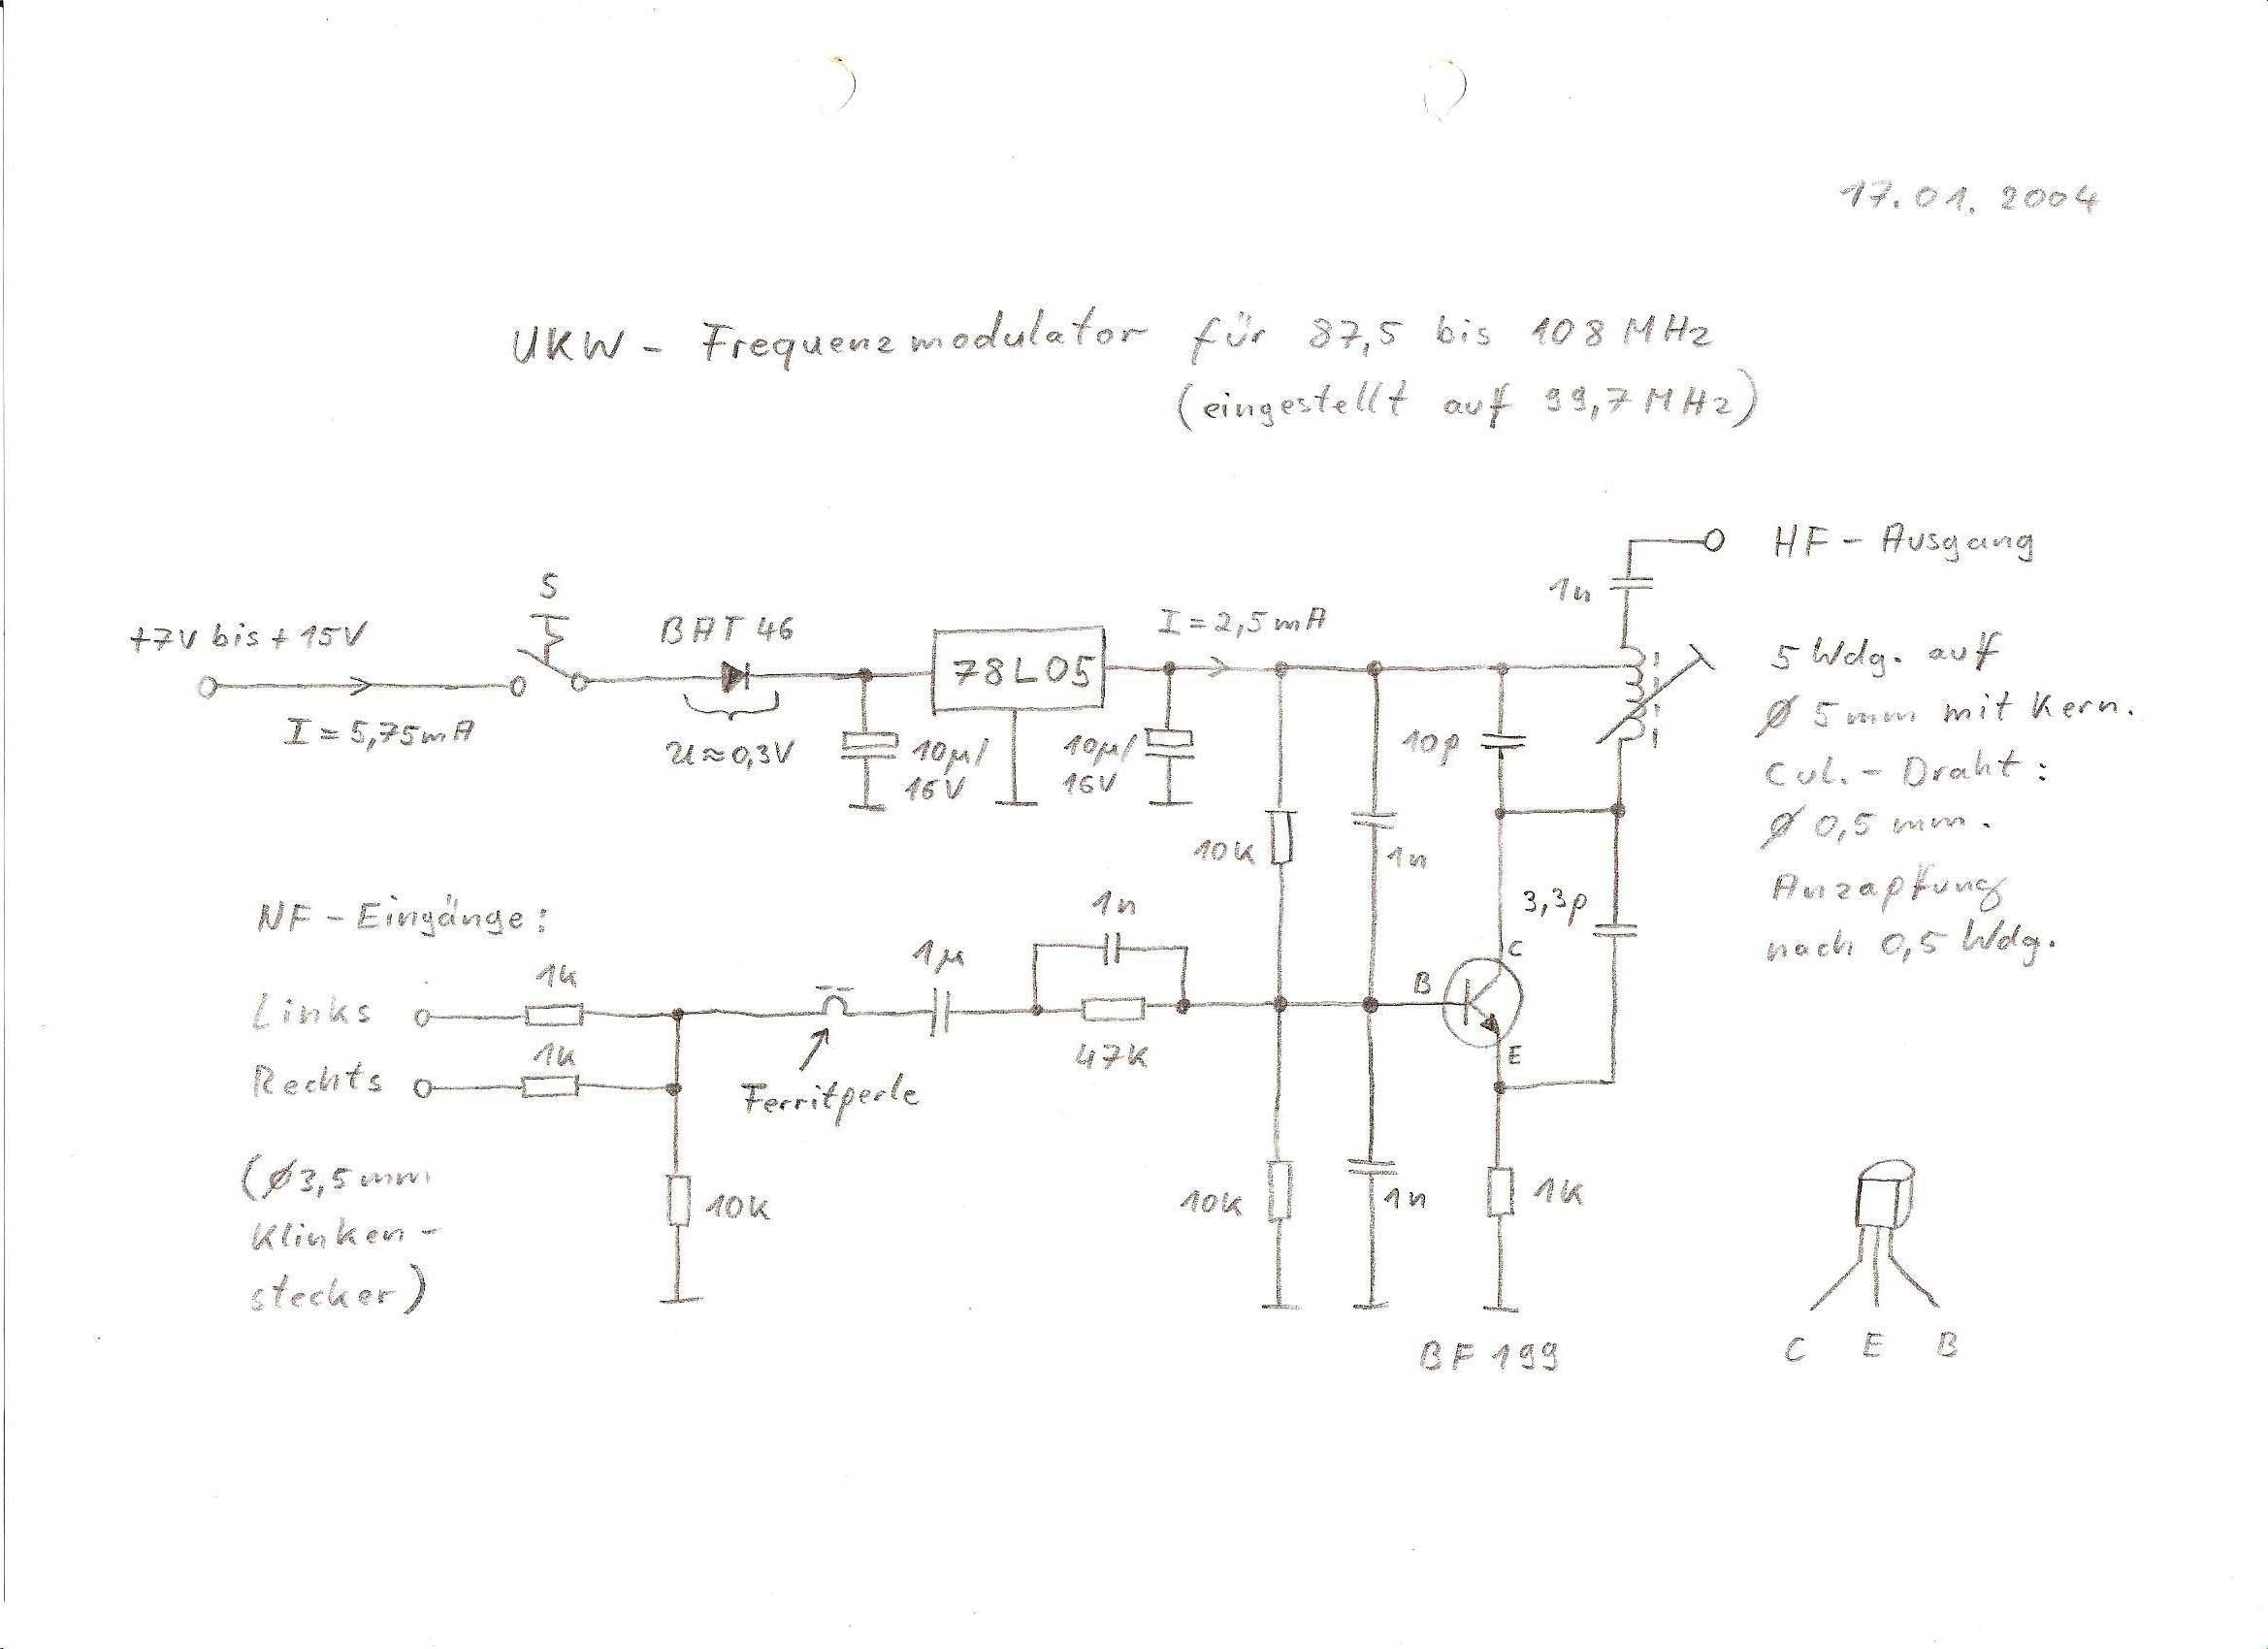 17.01.2004
UKW - Frequenzmodulator für 87,5 bis 108 MHz
(eingestellt auf 99,7 MHz)
HF - Ausgang
1n
S
+7V bis +15V
I = 5,75mA
BAT 46
U ≈ 0,3V
10µ/
16V
78L05
10µ/
16V
I = 2,5mA
10p
5 Wdg. auf
Ø 5mm mit Kern.
CuL.- Draht:
Ø 0,5 mm.
Anzapfung
nach 0,5 Wdg.
10k
1n
3,3p
NF - Eingänge:
Links
1k
Rechts
1k
(Ø3,5mm
Klinken-
stecker)
10k
Ferritperle
1µ
1n
47k
B
C
E
10k
1n
1k
BF 199
C E B